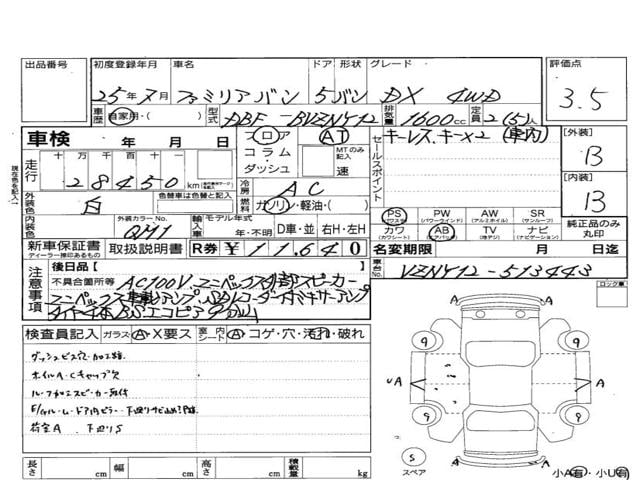 出品番号 初度登録年月 車名 ドア 形状 グレード 評価点
25年7月 ファミリアバン 5 バン DX 4WD 3.5
車歴 自家用・( ) 型式 DBF-BVZNY12 排気量 1600cc 定員 2(5)人
車検 年 月 日
フロア AT
コラム・ダッシュ
MTのみ記入 速
セールスポイント
キーレス、キー×2 (車内)
【外装】 B
【内装】 B
現在色を記入
走行 十万 万 千 百 十 一
28450 km
冷房 AC
外装色 白 色替車は色替と記入
燃料 ガソリン・軽油・( )
PS (パワステ) PW (パワーウインド) AW (アルミホイール) SR (サンルーフ)
カワ (カワシート) AB (エアバッグ) TV (地デジ) ナビ (ナビゲーション)
純正品のみ丸印
内装色 外装カラーNo. QM1
輸入車 モデル年式 年・不明 D車・並 右H・左H
新車保証書 ディーラー捺印あるもの 取扱説明書 R券 ¥ 11,640
名変期限 月 日迄
車台No. VZNY12-513443
注意事項 後日品( )
不具合箇所等 AC100V、ユニペックス外部スピーカー
タイヤ4本BSエコピア
ロック車
検査員記入 ガラス A・X要ス 室内シート A・コゲ・穴・汚れ・破れ
ダッシュビス穴・加工跡
ホイルA・Cキャップ欠
ルーフ加工スピーカー取付
荷室A 下廻りS
9 9 9 9
UA A A A A
S スペア
小A有・小U有
長さ cm 幅 cm 高さ cm 積載量 kg